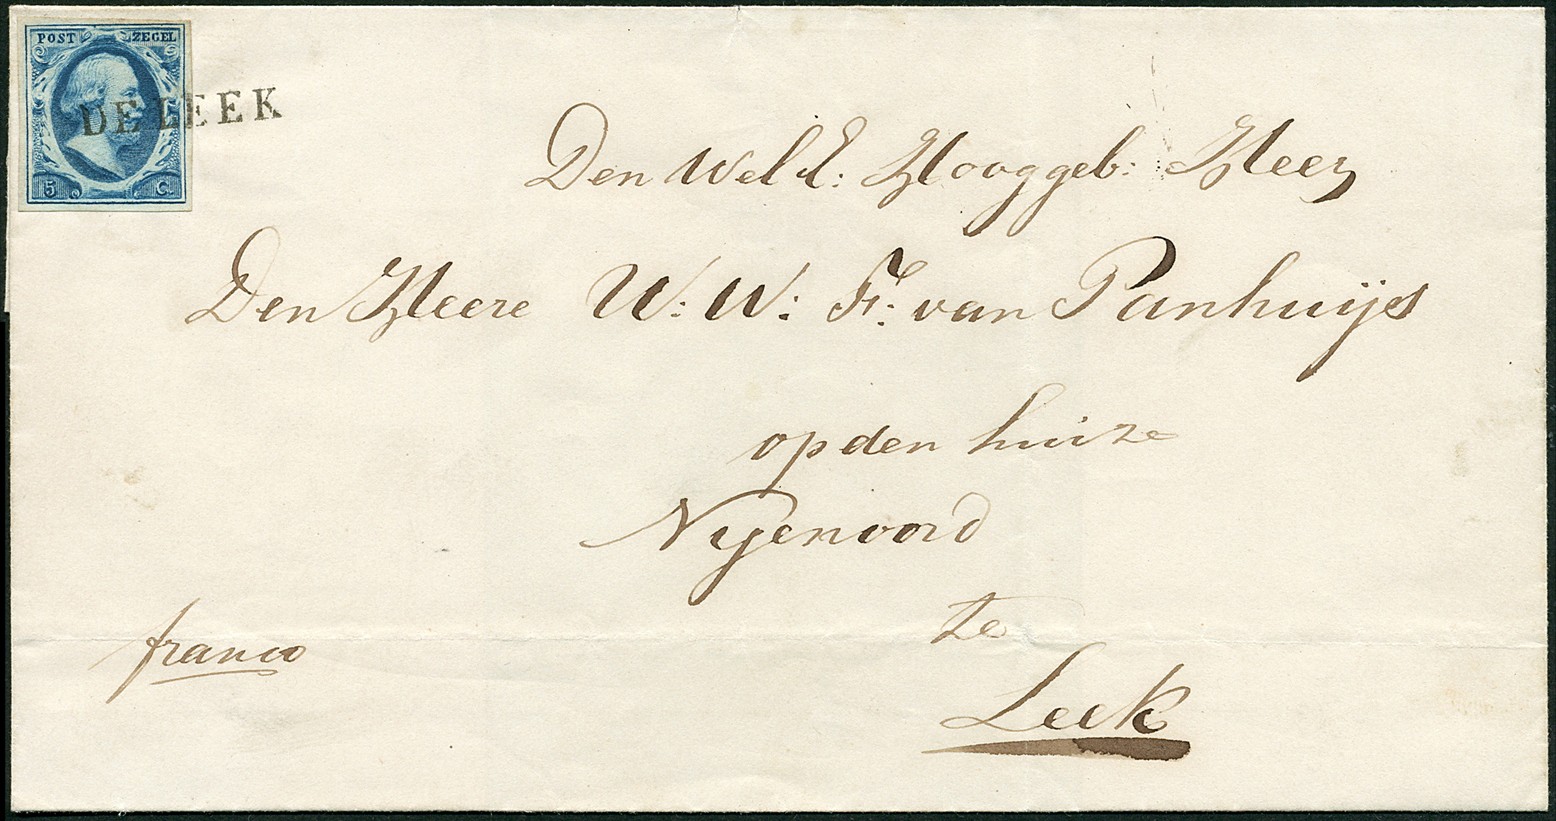 POST ZEGEL
DE LEEK
5 C.
Den Wel E: Hooggeb: Heer
Den Heere W: W: F: van Panhuijs
op den huize
Nyenoord
te
Leek
franco